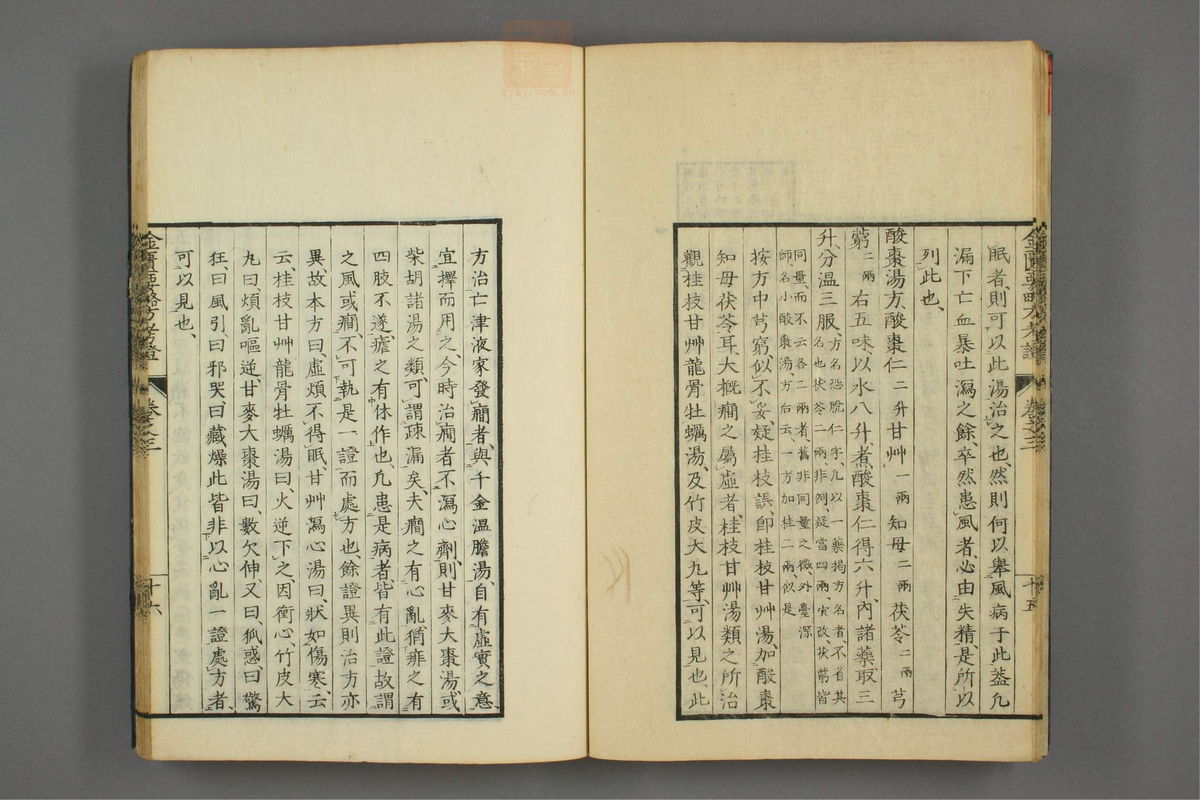 眠者、則可以此湯治之也、然則何以舉風病于此蓋凡
漏下亡血暴吐瀉之餘、卒然患風者、必由失精、是所以
列此也、
酸棗湯方、酸棗仁二升甘艸一兩知母二兩茯苓二兩芎
藭二兩右五味、以水八升、煮酸棗仁得六升、內諸藥取三
升、分溫三服、
方名恐脫仁字、凡以一藥揭方名者、不省其
名也、茯苓二兩非例、疑當四兩宜改、茯藭皆
同量、而不云各二兩者、舊非同量之徵、外臺深
師、名小酸棗湯、方后云、一方加桂二兩、似是
按方中芎藭、似不妥、疑桂枝誤、卽桂枝甘艸湯、加酸棗
知母茯苓耳、大概癇之屬虛者、桂枝甘艸湯類之所治
觀桂枝甘艸龍骨牡蠣湯、及竹皮大丸等、可以見也、此
金匱要略方考證 卷之二 十五
方治亡津液家發癇者、與千金溫膽湯、自有虛實之意、
宜擇而用之、今時治癇者不瀉心劑、則甘麥大棗湯、或
柴胡諸湯之類、可謂疎漏矣、夫癇之有心亂、猶痱之有
四肢不遂、瘧之有休作也、凡患是病者、皆有此證、故謂
之風或癇、不可執是一證而處方也、餘證異則治方亦
異、故本方曰、虛煩不得眠、甘艸瀉心湯曰、狀如傷寒云
云、桂枝甘艸龍骨牡蠣湯曰火逆下之、因衝心竹皮大
丸曰、煩亂嘔逆、甘麥大棗湯曰、數欠伸、又曰、狐惑、曰驚
狂、曰風引、曰邪哭、曰藏燥、此皆非以心亂一證處方者、
可以見也、
金匱要略方考證 卷之二 十六